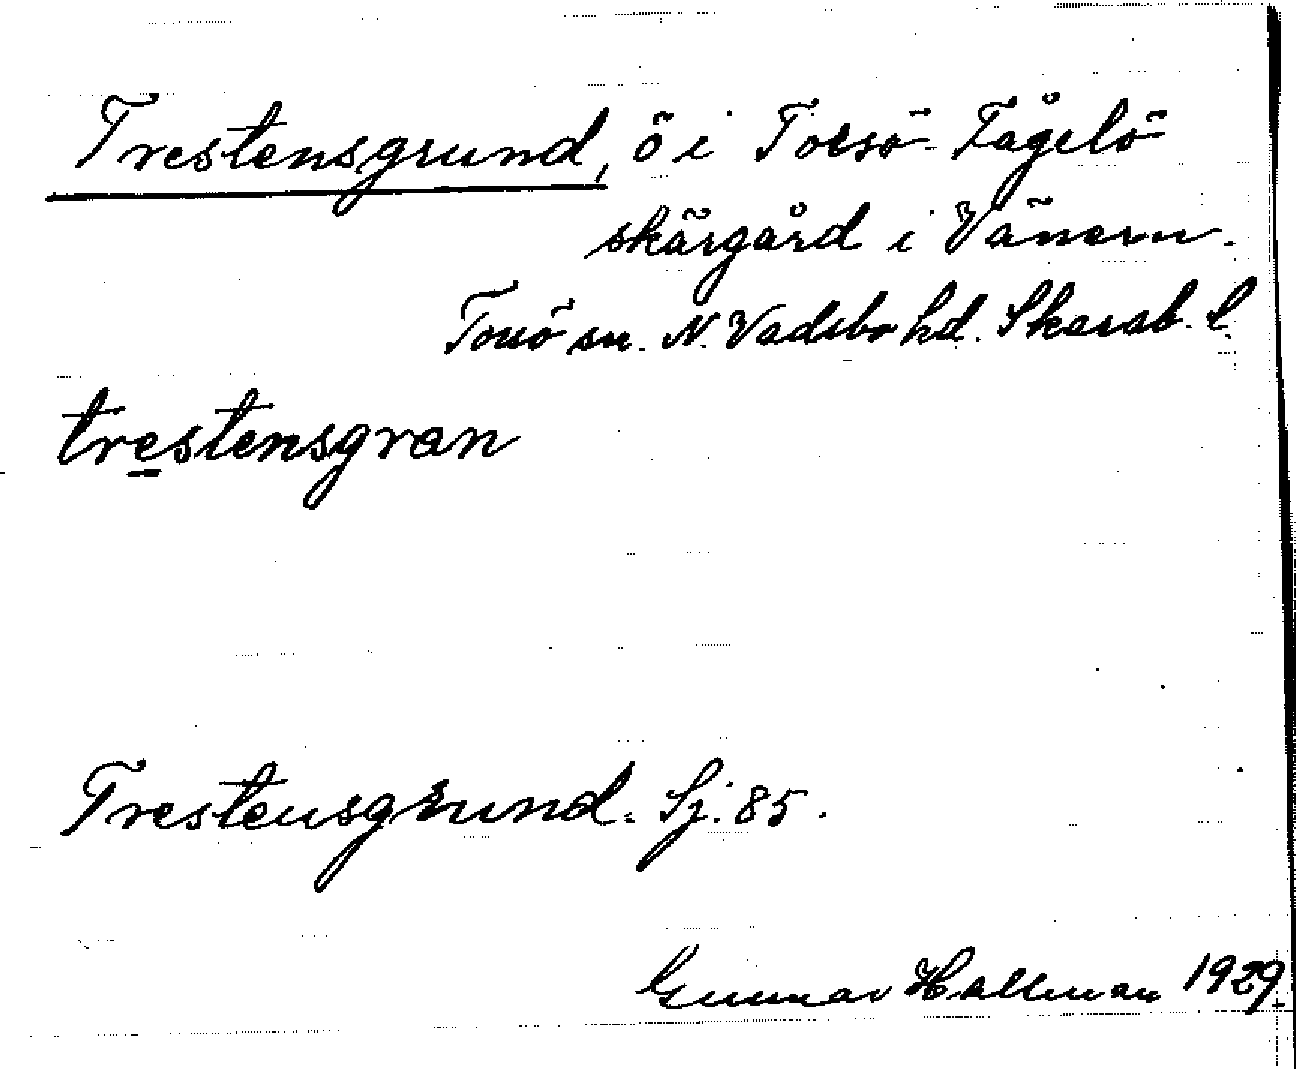 Trestensgrund, ö i Torsö-Fågelö
skärgård i Vänern.
Torsö sn. N. Vadsbo hd. Skarab. l.
trestensgran
Trestensgrund. Sj. 85.
Gunnar Hallman 1929